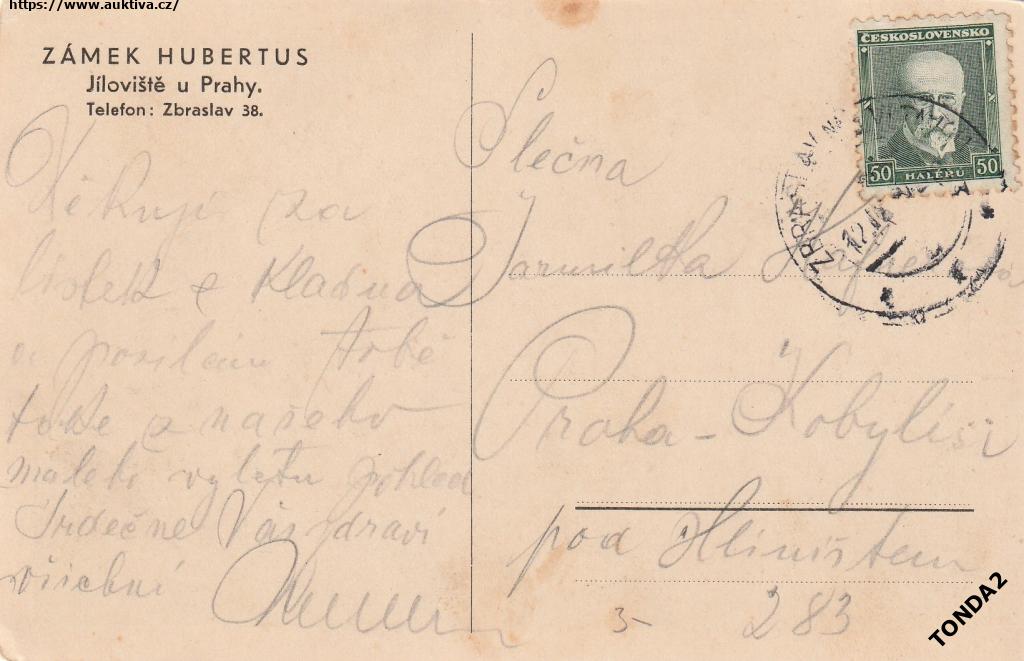 https://www.auktiva.cz/
ZÁMEK HUBERTUS
Jíloviště u Prahy.
Telefon: Zbraslav 38.
Děkuji za
lístek z Kladna
a posílám tobě
také z našeho
malého výletu pohled
Srdečně Vás zdraví
všichni
Slečna
Jarmilka
Praha - Kobylisi
pod Hliništem
283
3-
ČESKOSLOVENSKO
50 HALÉŘŮ 50
ZBRASLAV
TONDA2